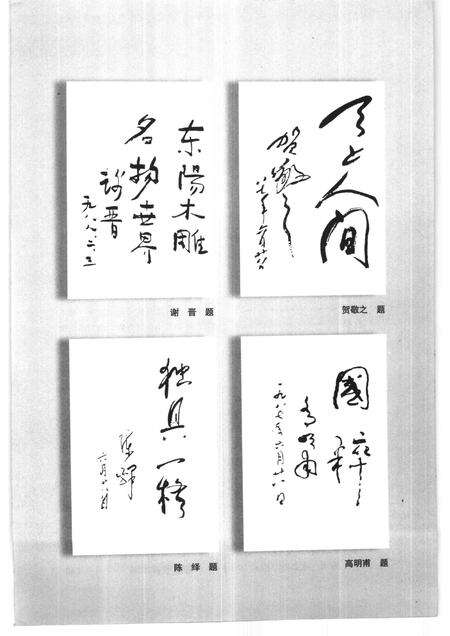 东陽木雕
名扬世界
谢晋
一九八九.六.三
谢 晋 题
天上人间
贺敬之
贺敬之 题
独具一格
陈绎
陈 绎 题
國粹
高明甫
一九八七年六月廿八日
高明甫 题